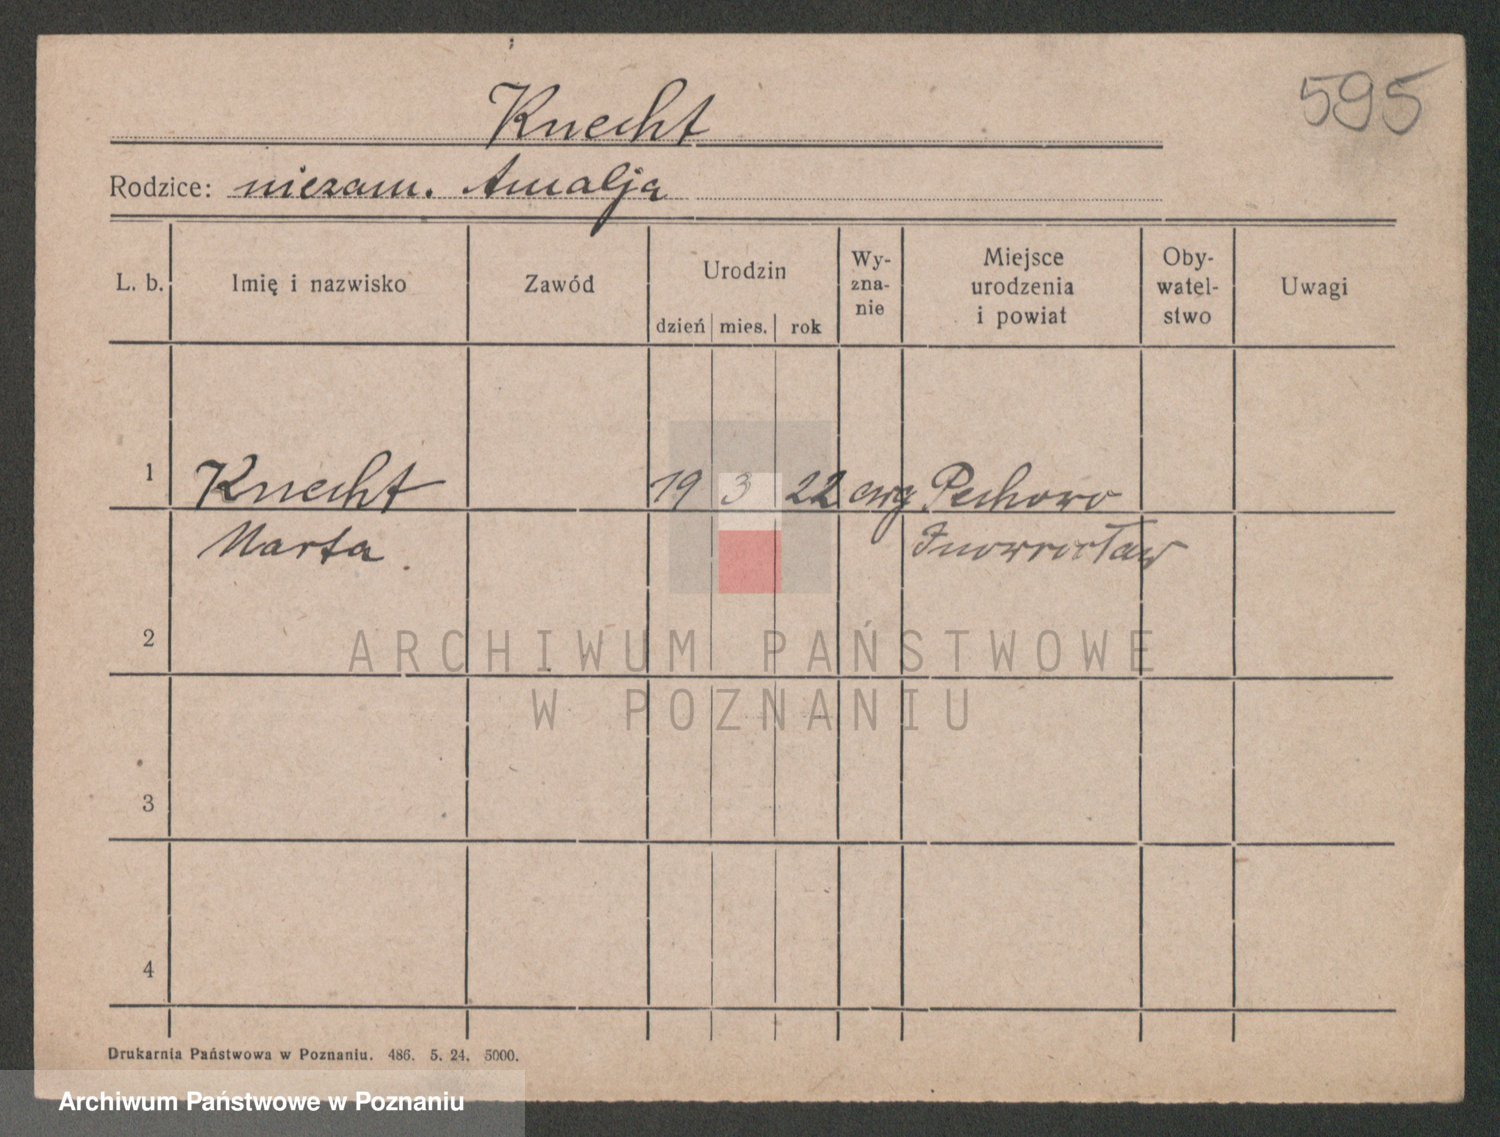 595
Knecht
Rodzice: niezam. Amalja
L. b. Imię i nazwisko Zawód Urodzin Wy-zna-nie Miejsce urodzenia i powiat Oby-watel-stwo Uwagi
dzień mies. rok
1 Knecht 19 3 22 ewg Pechowo
Marta Inowrocław
2
3
4
ARCHIWUM PAŃSTWOWE
W POZNANIU
Drukarnia Państwowa w Poznaniu. 486. 5. 24. 5000.
Archiwum Państwowe w Poznaniu